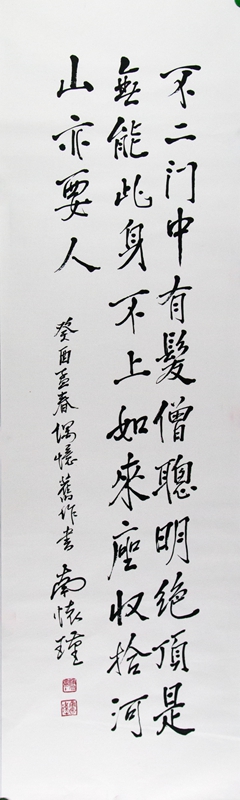 不二门中有髮僧聰明绝頂是
無能此身不上如來座收拾河
山亦要人
癸酉孟春偶憶舊作书 南懷瑾